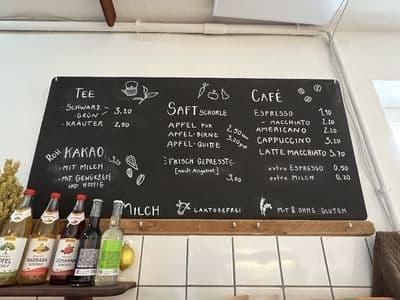 TEE
· SCHWARZ
GRÜN
3,20
· KRÄUTER 2,80
ROH KAKAO
· MIT MILCH
· MIT GEWÜRZEN
UND HONIG
3,20
SAFTSCHORLE
APFEL PUR
APFEL-BIRNE
APFEL-QUITTE
2,50
3,20
FRISCH GEPRESST
[nach Angebot]
3,20
CAFÉ
ESPRESSO 1,10
- MACCHIATO 2,20
AMERICANO 2,20
CAPPUCCINO 3,20
LATTE MACCHIATO 3,70
extra ESPRESSO 0,50
extra MILCH 0,20
MILCH LAKTOSEFREI
MIT & OHNE GLUTEN
BARBARA